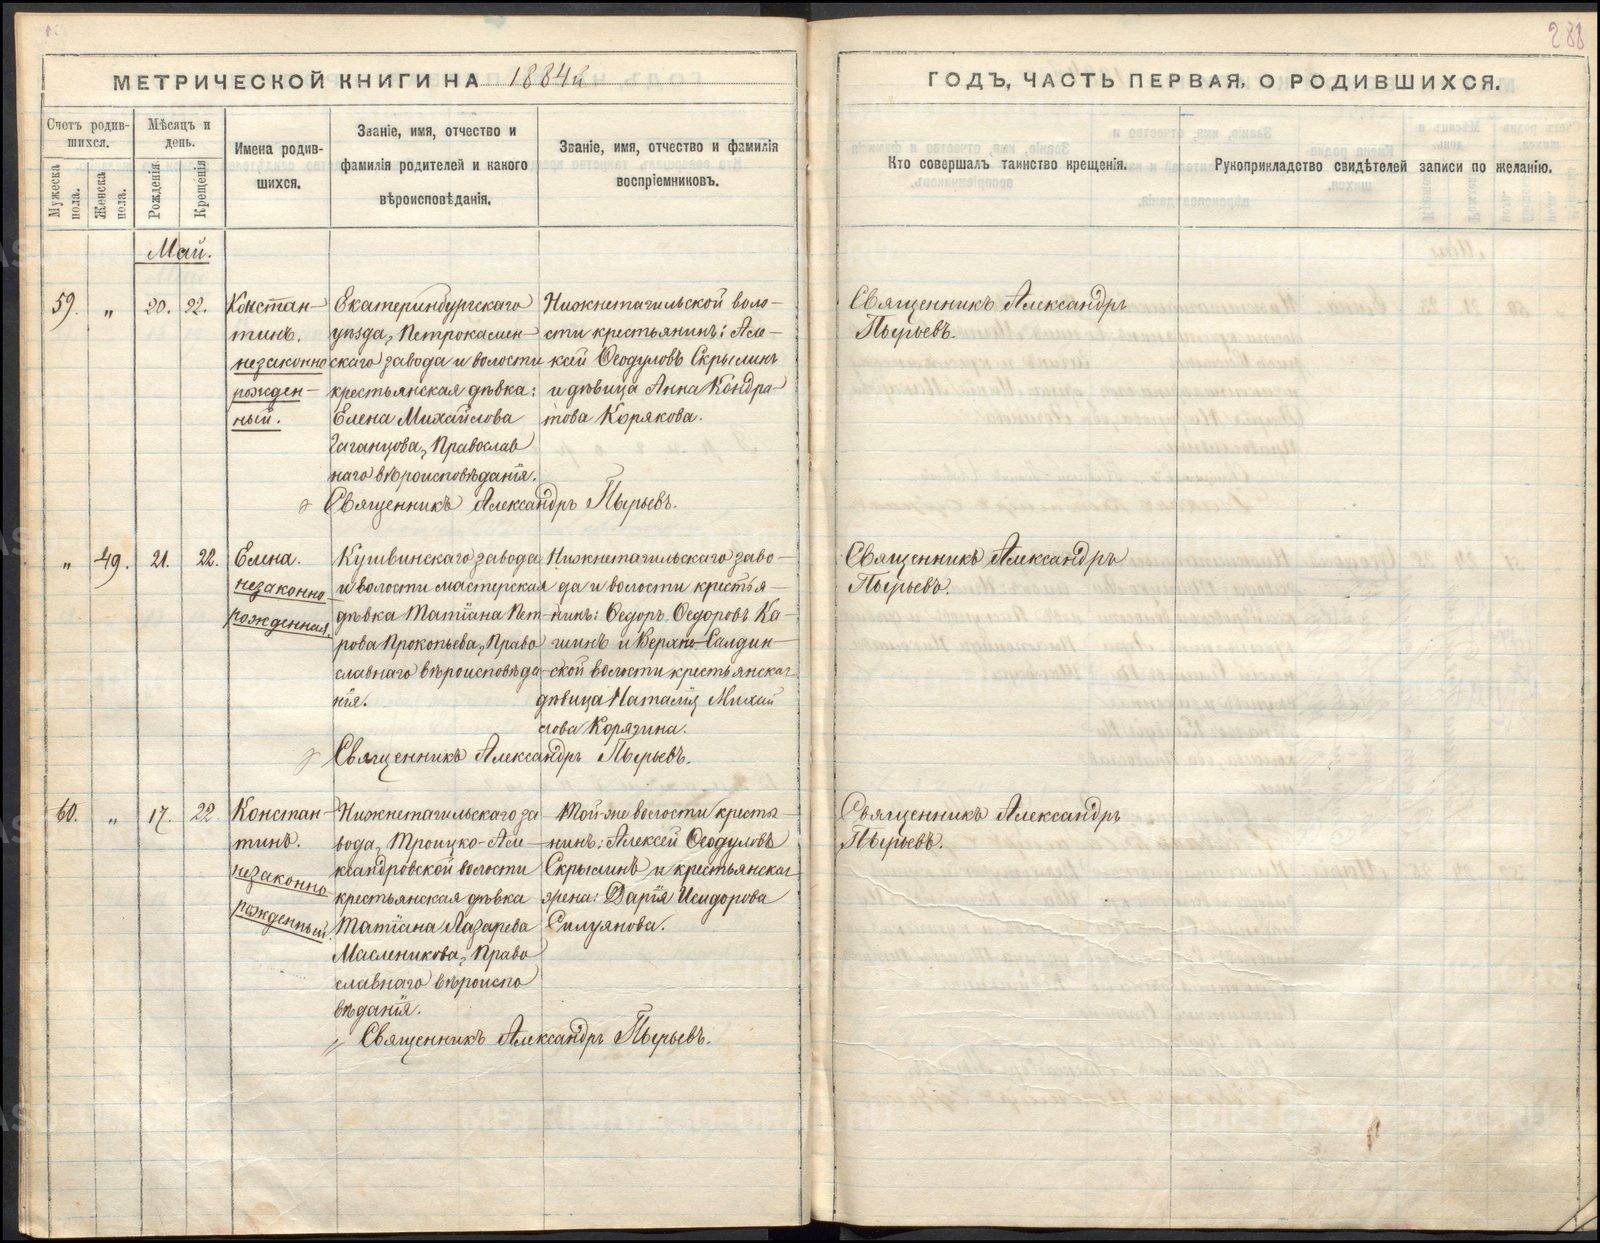 288
МЕТРИЧЕСКОЙ КНИГИ НА 1884й
ГОДЪ, ЧАСТЬ ПЕРВАЯ, О РОДИВШИХСЯ.
Счетъ родив-
шихся.
Мужеска
пола.
Женска
пола.
Мѣсяцъ и
день.
Рожденія
Крещенія
Имена родив-
шихся.
Званіе, имя, отчество и
фамилія родителей и какого
вѣроисповѣданія.
Званіе, имя, отчество и фамилія
воспріемниковъ.
Кто совершалъ таинство крещенія.
Рукоприкладство свидѣтелей записи по желанію.
Май.
59. „ 20. 22.
Констан-
тинъ.
незаконно
рожден-
ный.
Екатеринбургскаго
уѣзда, Петрокамен-
скаго завода и волости
крестьянская дѣвка:
Елена Михайлова
Гаганцова, Православ
наго вѣроисповѣданія.
Нижнетагильской воло-
сти крестьянинъ: Але-
ксѣй Ѳеодуловъ Скрылинъ
и дѣвица Анна Кондра-
това Корякова.
Священникъ Александръ Пырьевъ.
Священникъ Александръ
Пырьевъ.
„ 49. 21. 22.
Елена.
незаконно
рожденная.
Кушвинскаго завода
и волости мастерская
дѣвка Татіана Пет-
рова Прокопьева, Право
славнаго вѣроисповѣда-
нія.
Нижнетагильскаго заво-
да и волости крестья-
нинъ: Ѳедоръ Ѳедоровъ Ка-
шинъ и Верхно-Салдин-
ской волости крестьянская
дѣвица Наталія Михай
лова Корягина.
Священникъ Александръ Пырьевъ.
Священникъ Александръ
Пырьевъ.
60. „ 17. 22
Констан-
тинъ.
незаконно
рожденный.
Нижнетагильскаго за
вода, Троицко-Але-
ксандровской волости
крестьянская дѣвка
Татіана Лазарева
Масленикова, Право
славнаго вѣроиспо
вѣданія.
Той-же волости крестья
нинъ: Алексѣй Ѳеодуловъ
Скрылинъ и крестьянская
жена: Дарія Исидорова
Силуянова.
Священникъ Александръ Пырьевъ.
Священникъ Александръ
Пырьевъ.